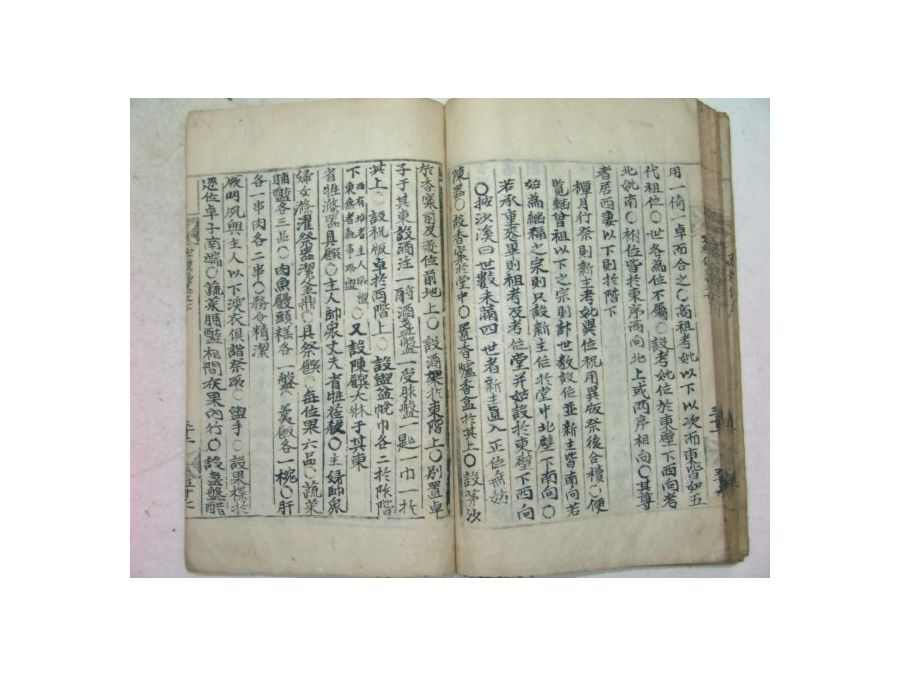 用一倚一卓而合之○高祖考妣以下以次而東皆如五
代祖位○世各為位不屬○設考妣位於東壁下西向考
北妣南○祔位皆於東序西向北上或兩序相向○其尊
者居西妻以下則於階下
禫月行祭則新主考妣異位祝用異版祭後合櫝○便
覽繼曾祖以下之宗則計世數設位並新主皆南向若
始為繼禰之宗則只設新主位於堂中北壁下南向○
若承重妾單則祖考及考位堂并姑設於東壁下西向
○按沙溪曰世數未滿四世者新主直入正位無妨
陳器○設香案於堂中○置香爐香盒於其上○設茅沙
於香案前及逐位前地上○設酒架於東階上○別置卓
子于其東設酒注一酹酒盞盤一受胙盤一匙一巾一於
其上○設祝版卓於西階上○設盥盆帨巾各二於阼階
下東西有坮者主人 盥東無者執事 盥○又設陳饌大牀于其東
省牲滌器具饌○主人帥衆丈夫省牲莅殺○主婦帥衆
婦女滌濯祭器潔釜鼎○具祭饌○每位果六品○蔬菜
脯醢各三品○肉魚饅頭糕各一盤○羹飯各一椀○肝
各一串肉各二串○務令精潔
厥明夙興主人以下深衣俱詣祭所○盥手○設果楪於
逐位卓子南端○蔬菜脯醢相間次果內行○設盞盤醋